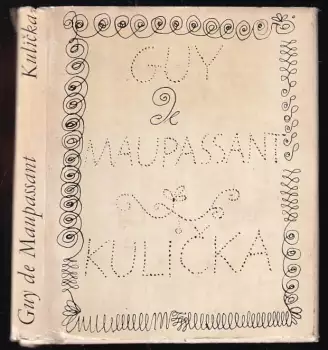 Guy de Maupassant Kulička
GUY
de
MAUPASSANT
KULIČKA